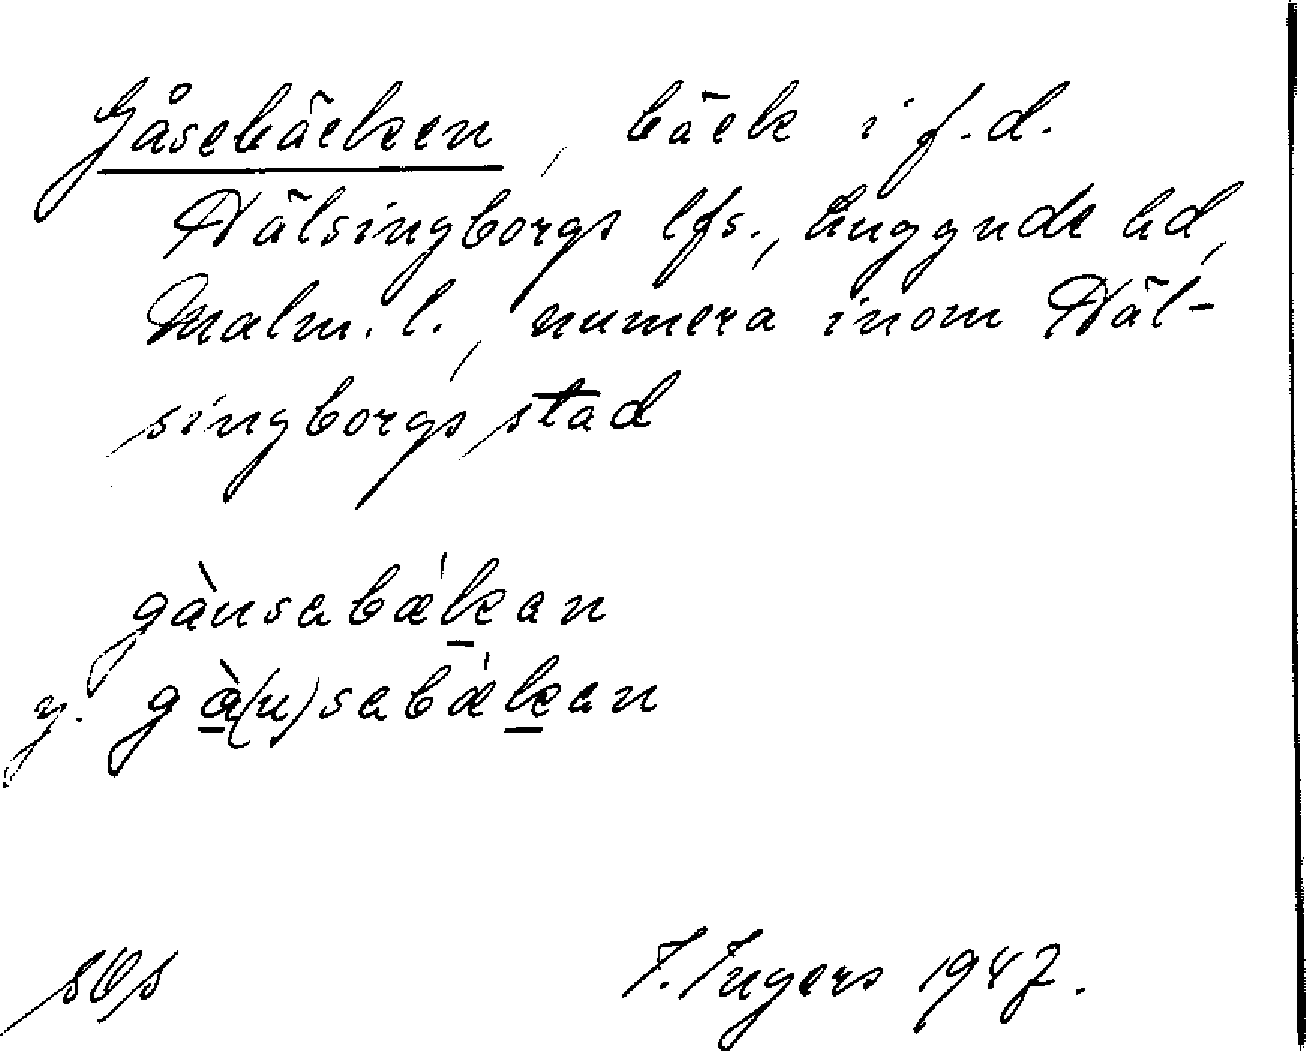 Gåsebäcken, bäck i f.d.
Hälsingborgs lfs., Luggude hd,
Malm. l., numera inom Häl-
singborgs stad
gànsabǽkan
y. gà(n)sabǽkan
I. Ingers 1947.